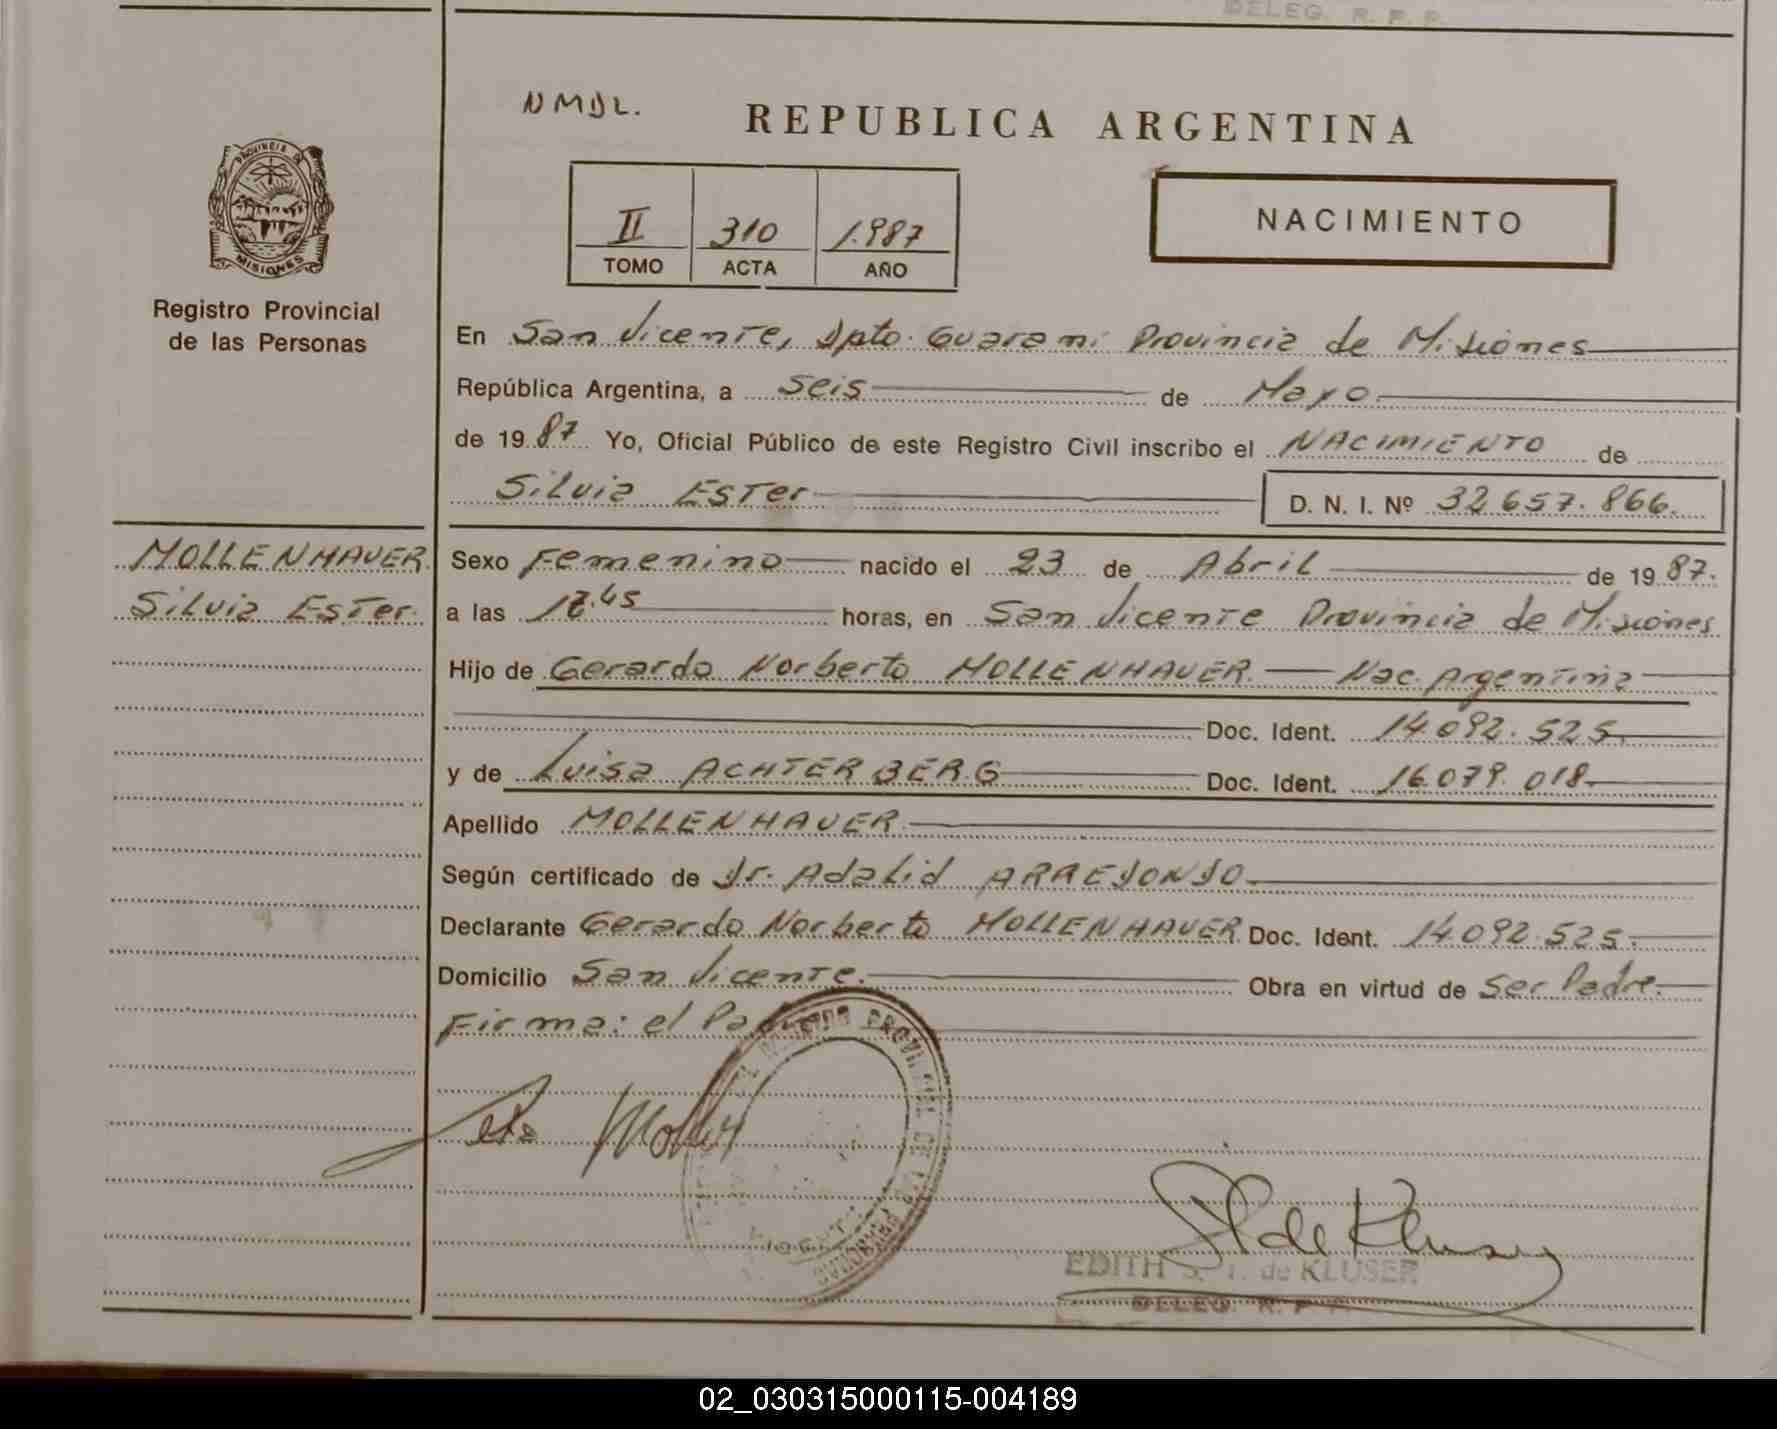 DELEG. R. P. P.
NMDL.
REPUBLICA ARGENTINA
PROVINCIA DE
MISIONES
II 310 1.987
TOMO ACTA AÑO
NACIMIENTO
Registro Provincial
de las Personas
En San Vicente, Dpto. Guaraní Provincia de Misiones
República Argentina, a Seis de Mayo
de 1987 Yo, Oficial Público de este Registro Civil inscribo el NACIMIENTO de
Silvia Ester D. N. I. Nº 32.657.866.
MOLLENHAUER
Silvia Ester.
Sexo Femenino nacido el 23 de Abril de 1987.
a las 17.45 horas, en San Vicente Provincia de Misiones
Hijo de Gerardo Norberto MOLLENHAUER. Nac. Argentina
Doc. Ident. 14.092.525.
y de Luisa ACHTERBERG Doc. Ident. 16.079.018
Apellido MOLLENHAUER.
Según certificado de Dr. Adalid ARREDONDO.
Declarante Gerardo Norberto MOLLENHAUER. Doc. Ident. 14.092.525.
Domicilio San Vicente. Obra en virtud de Ser Padre.
Firma: el
REGISTRO PROVINCIAL DE LAS PERSONAS
de Kluser
EDITH S. T. de KLUSER
DELEG. R. P. P.
02_030315000115-004189